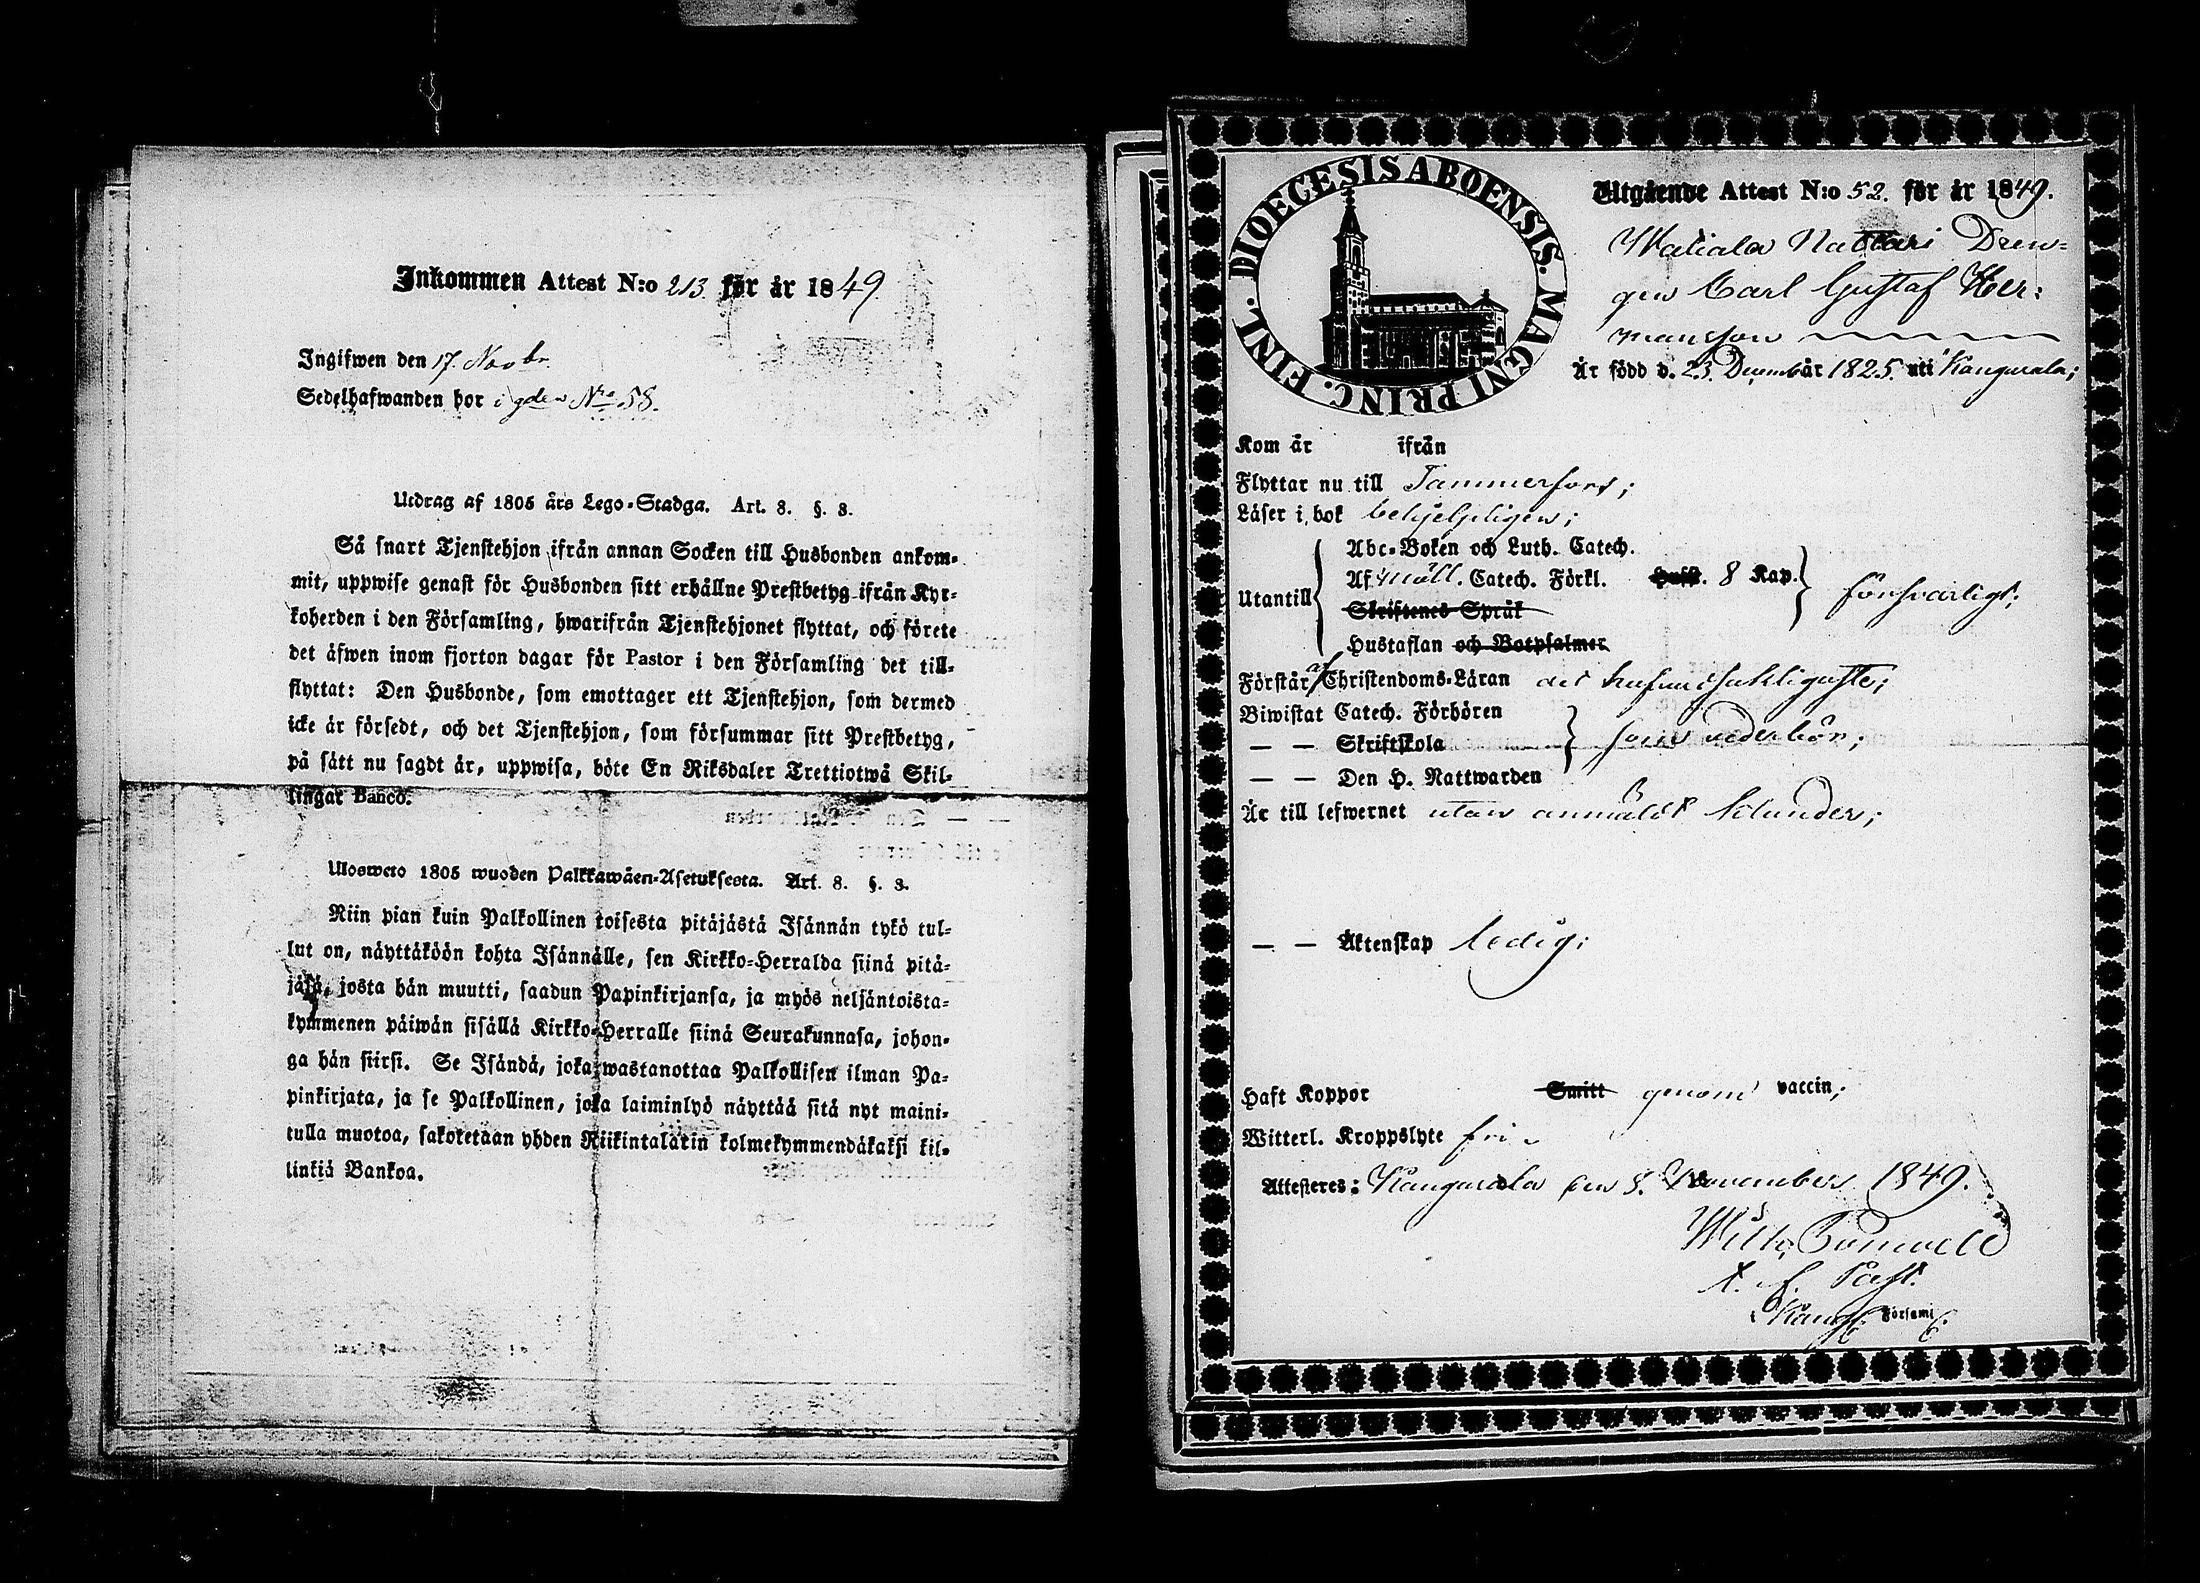 Inkommen Attest N:o 213. för år 1849.
Ingifwen den 17. Novbr.
Sedelhafwanden bor i gden Nro 58.
Utdrag af 1805 års Lego-Stadga. Art. 8. §. 3.
Så snart Tjenstehjon ifrån annan Socken till Husbonden ankom-
mit, uppwise genast för Husbonden sitt erhållne Prestbetyg ifrån Kyr-
koherden i den Församling, hwarifrån Tjenstehjonet flyttat, och förete
det äfwen inom fjorton dagar för Pastor i den Församling det till-
flyttat: Den Husbonde, som emottager ett Tjenstehjon, som dermed
icke är försedt, och det Tjenstehjon, som försummar sitt Prestbetyg,
på sätt nu sagdt är, uppwisa, böte En Riksdaler Trettiotwå Skil-
lingar Banco.
Ulosweto 1805 wuoden Palkkawäen-Asetuksesta. Art. 8. §. 3.
Niin pian kuin Palkollinen toisesta pitäjästä Isännän tykö tul-
lut on, näyttäköön kohta Isännälle, sen Kirkko-Herralda siinä pitä-
jäsä, josta hän muutti, saadun Papinkirjansa, ja myös neljäntoista-
kymmenen päiwän sisällä Kirkko-Herralle siinä Seurakunnasa, johon-
ga hän siirsi. Se Isändä, joka wastanottaa Palkollisen ilman Pa-
pinkirjata, ja se Palkollinen, joka laiminlyö näyttää sitä nyt maini-
tulla muotoa, sakotetaan yhden Riikintalarin kolmekymmendäkaksi kil-
linkiä Bankoa.
DIOECESIS ABOENSIS. MAGNI PRINC. FINL.
Utgående Attest N:o 52. för år 1849.
Watiala Nattari Dren-
gen Carl Gustaf Her-
mansson
Är född d. 23. Decemb år 1825. uti Kangasala;
Kom år ifrån
Flyttar nu till Tammerfors;
Läser i bok behjelpligen;
Utantill
Abc-Boken och Luth. Catech.
Af Möll. Catech. Förkl. Husst. 8 Kap. försvarligt;
Skriftenes Språk
Hustaflan och Botpsalmer
Förstår af Christendoms-Läran det hufvudsakligaste;
Biwistat Catech. Förhören
— — Skriftskola som vederbör;
— — Den H. Nattwarden
Är till lefwernet utan anmäldt klander;
— — Äktenskap ledig;
Haft Koppor Smitt genom vaccin;
Witterl. Kroppslyte fri
Attesteres: Kangasala den 8. November 1849.
Wilh.
t. f. Past.
i Kangs. Församl.